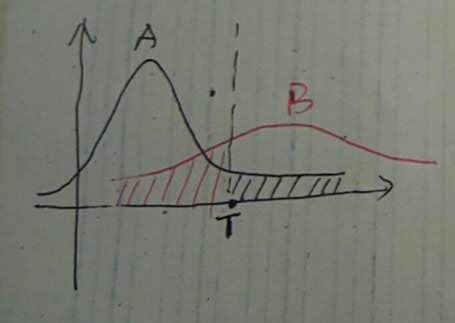 A
B
T